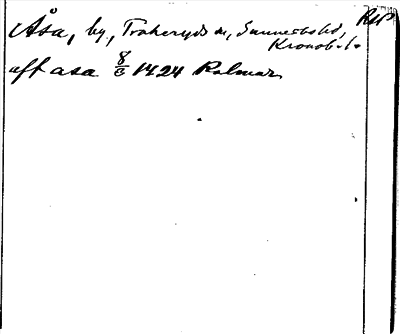 RAP
Åsa, by, Traheryds sn, Sunnerbo hd,
Kronob. l.
aff asa 8/6 1424 Kalmar